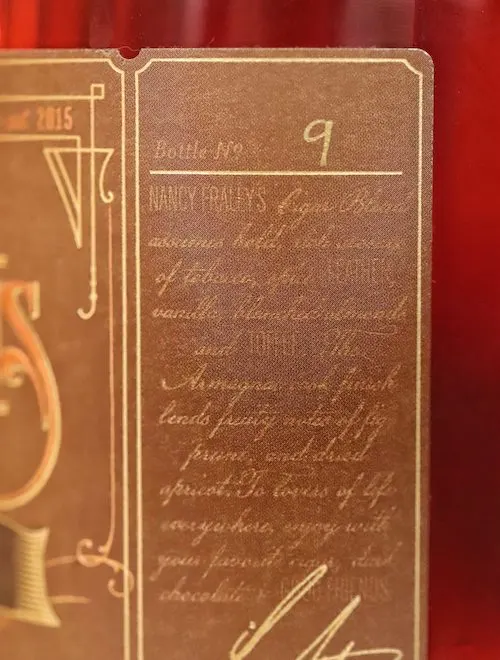 2015
S
Bottle Nº 9
NANCY FRALEY'S Cigar Blend
assumes bold, rich
of tobacco, LEATHER,
vanilla, blanched almonds
and TOFFEE. The
Armagnac cask finish
lends fruity notes of fig
prune, and dried
apricot. To lovers of life
everywhere, enjoy with
your favorite cigar, dark
chocolate & GOOD FRIENDS.